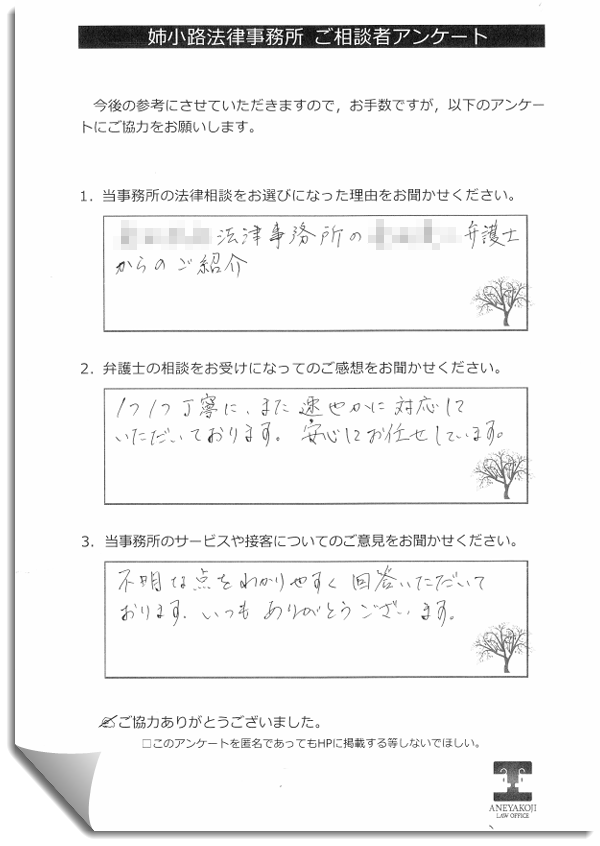 姉小路法律事務所 ご相談者アンケート
今後の参考にさせていただきますので，お手数ですが，以下のアンケー
トにご協力をお願いします。
1．当事務所の法律相談をお選びになった理由をお聞かせください。
法律事務所の 弁護士
からのご紹介
2．弁護士の相談をお受けになってのご感想をお聞かせください。
1つ1つ丁寧に、また速やかに対応して
いただいております。安心してお任せしています。
3．当事務所のサービスや接客についてのご意見をお聞かせください。
不明な点をわかりやすく回答いただいて
おります。いつもありがとうございます。
✍ご協力ありがとうございました。
□このアンケートを匿名であってもHPに掲載する等しないでほしい。
ANEYAKOJI
LAW OFFICE